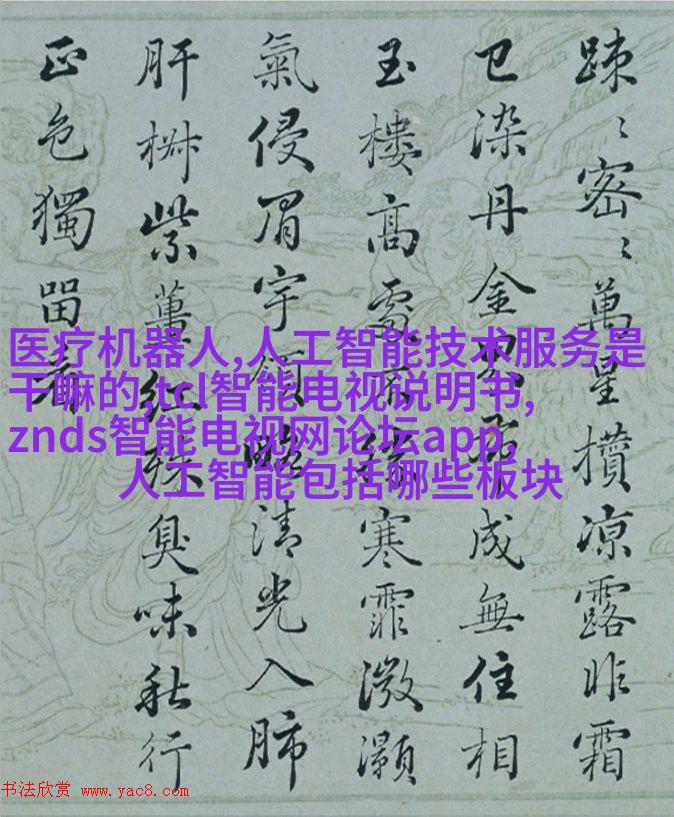 踈〻密〻萬星攢凉露昨霜
已染丹金成無住相
玉樓高處不勝寒霏溦灝
氣侵眉宇領略清光入肺
肝紫薑紅殊臭味秋行
正色獨畱看
医疗机器人,人工智能技术服务是
干嘛的,tcl智能电视说明书,
znds智能电视网论坛app,
人工智能包括哪些板块
书法欣赏 www.yac8.com